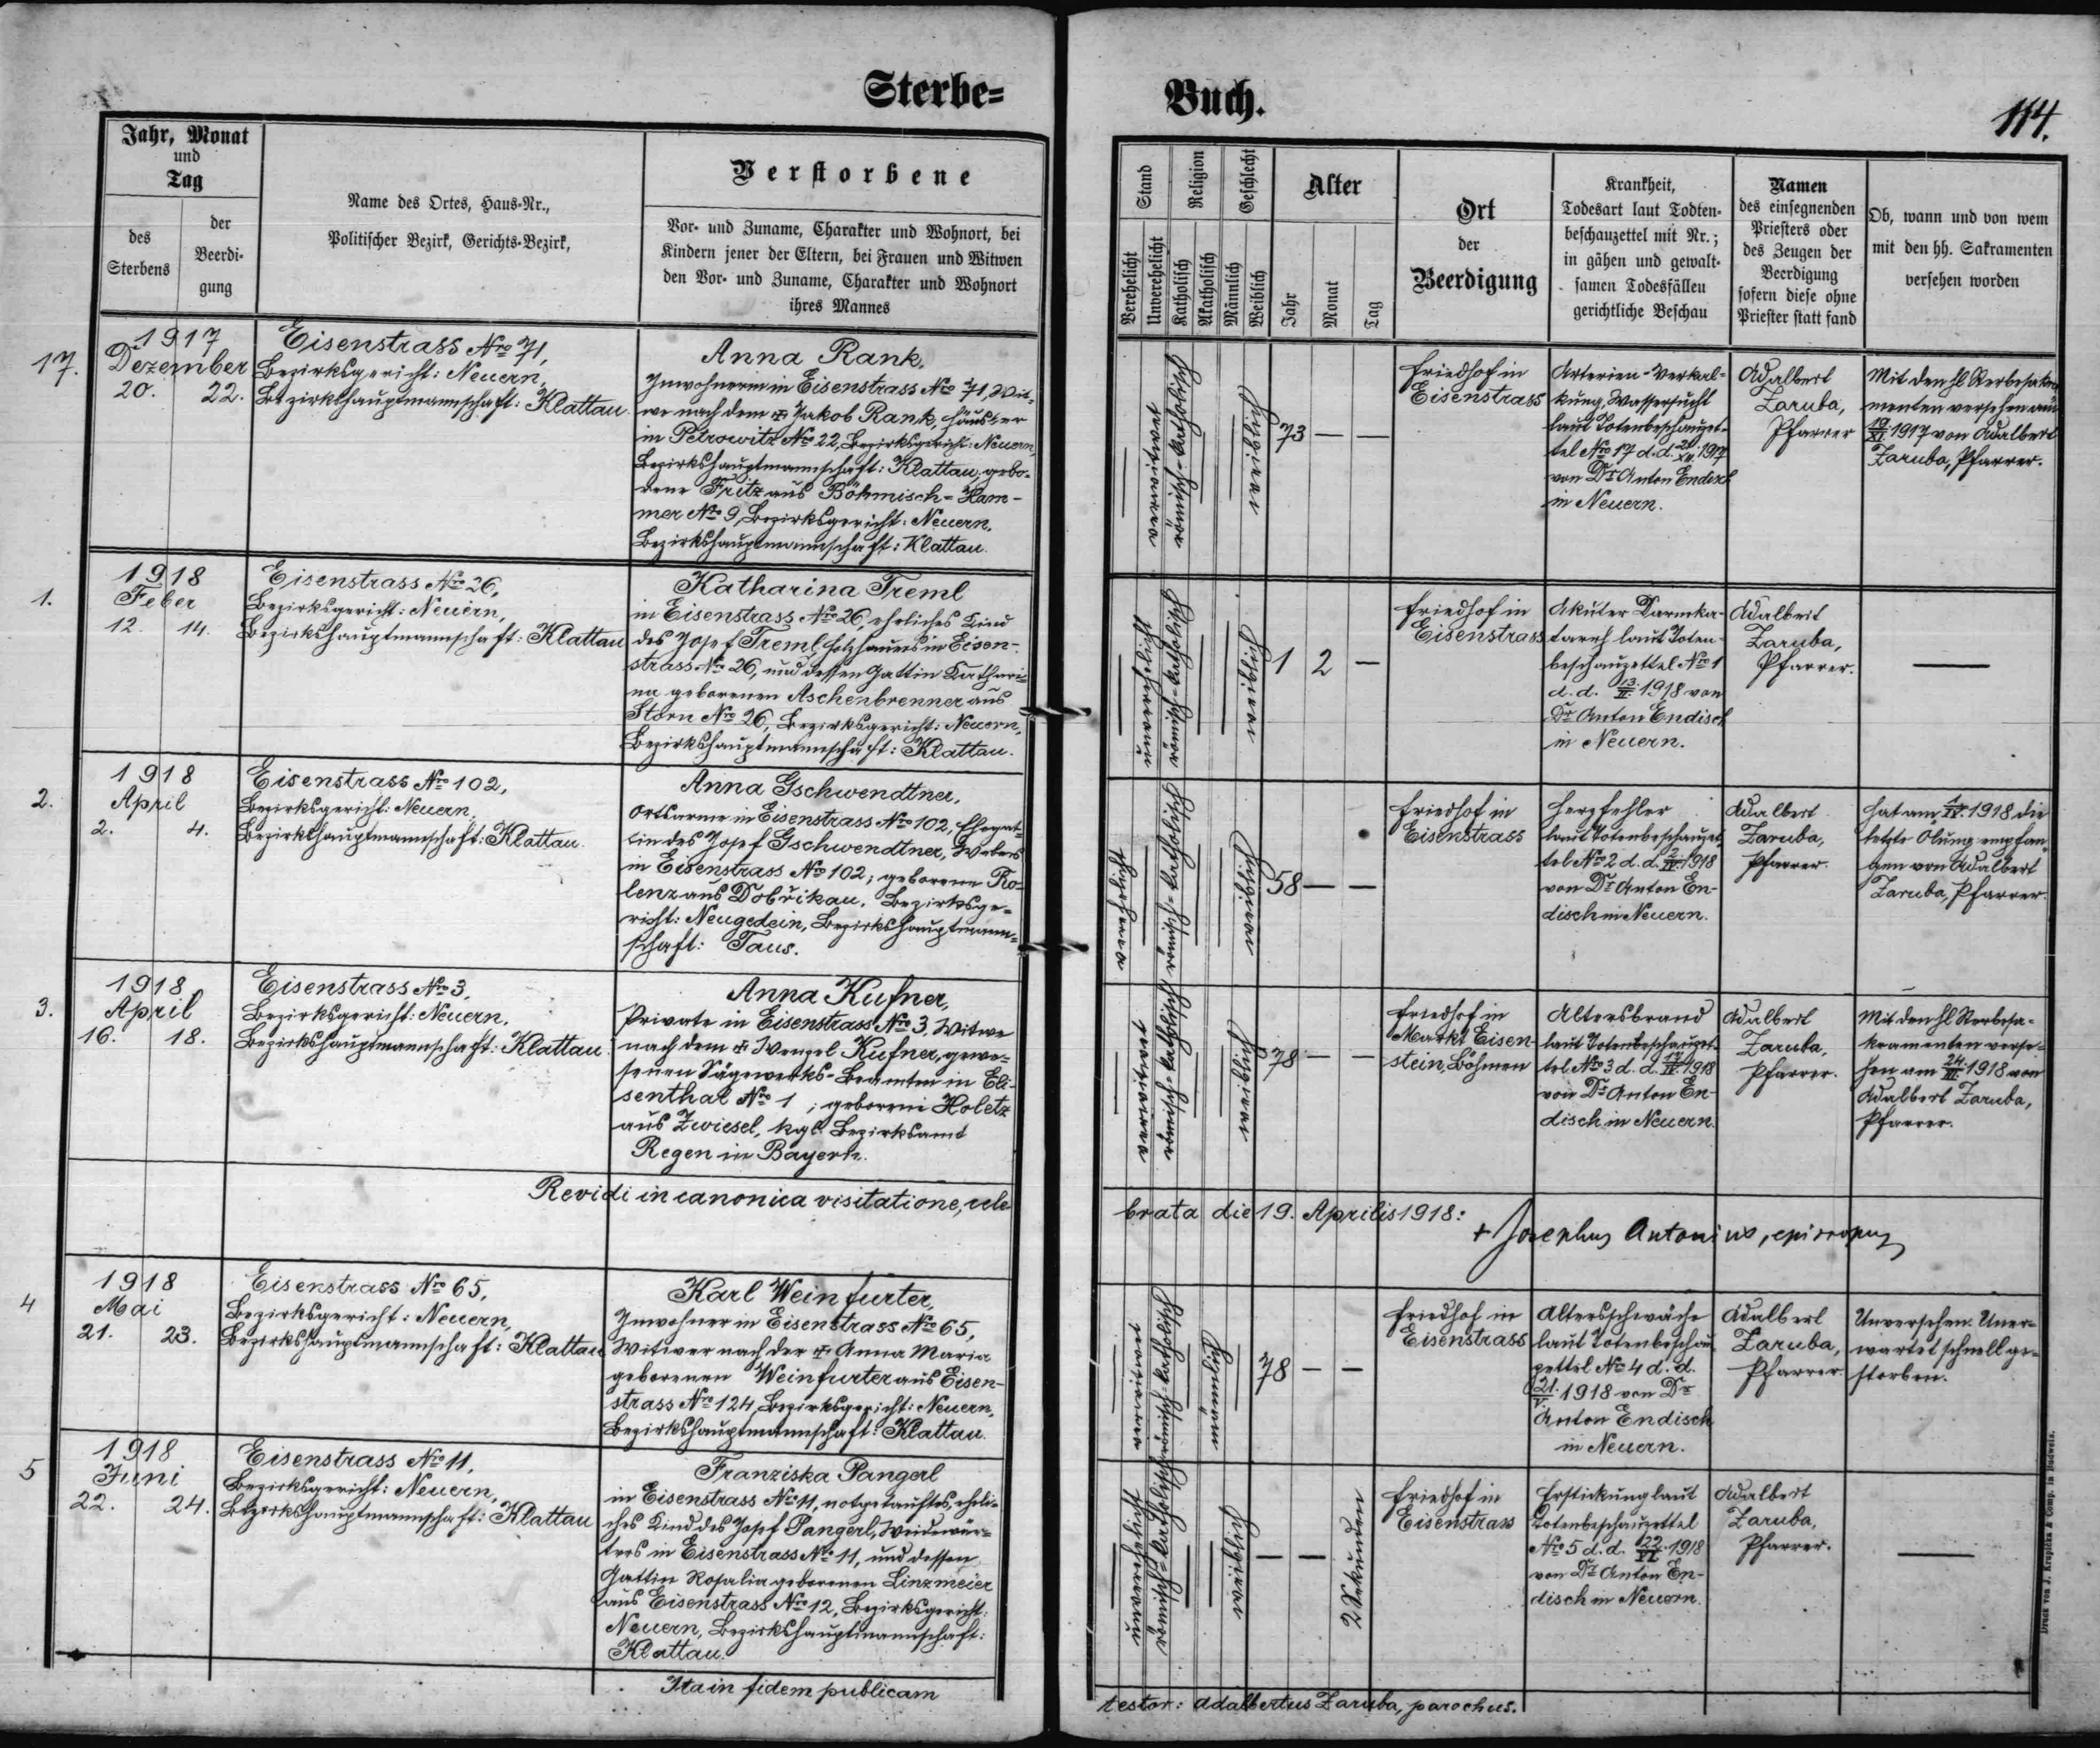 Sterbe=
Buch.
114.
Jahr, Monat
und
Tag
des
Sterbens
der
Beerdi-
gung
Name des Ortes, Haus-Nr.,
Politischer Bezirk, Gerichts-Bezirk,
Verstorbene
Vor- und Zuname, Charakter und Wohnort, bei
Kindern jener der Eltern, bei Frauen und Witwen
den Vor- und Zuname, Charakter und Wohnort
ihres Mannes
Stand
Verehelicht
Unverehelicht
Religion
Katholisch
Akatholisch
Geschlecht
Männlich
Weiblich
Alter
Jahr
Monat
Tag
Ort
der
Beerdigung
Krankheit,
Todesart laut Todten-
beschauzettel mit Nr.;
in gähen und gewalt-
samen Todesfällen
gerichtliche Beschau
Namen
des einsegnenden
Priesters oder
des Zeugen der
Beerdigung
sofern diese ohne
Priester statt fand
Ob, wann und von wem
mit den hh. Sakramenten
versehen worden
17.
1917
Dezember
20. 22.
Eisenstrass Nro 71,
Bezirksgericht: Neuern,
Bezirkshauptmannschaft: Klattau.
Anna Rank,
Inwohnerin in Eisenstrass Nro 71, Wit-
we nach dem + Jakob Rank, Häusler
in Petrowitz Nro 22, Bezirksgericht: Neuern,
Bezirkshauptmannschaft: Klattau, gebo-
rene Fritz aus Böhmisch-Ham-
mer Nro 9, Bezirksgericht: Neuern,
Bezirkshauptmannschaft: Klattau.
verwitwet
römisch=katholisch
weiblich
73 — —
Friedhof in
Eisenstrass
Arterien-Verkal-
kung, Wassersucht
laut Totenbeschauzet-
tel Nro 17 d. d. 20/XII. 1917
von Dr Anton Endisch
in Neuern.
Adalbert
Zaruba,
Pfarrer
Mit den hl Sterbesakra-
menten versehen am
19/XI. 1917 von Adalbert
Zaruba, Pfarrer.
1.
1918
Feber
12. 14.
Eisenstrass Nro 26,
Bezirksgericht: Neuern,
Bezirkshauptmannschaft: Klattau
Katharina Treml
in Eisenstrass Nro 26, eheliches Kind
des Josef Treml, Holzhauers in Eisen-
strass Nro 26, und dessen Gattin Kathari-
na geborenen Aschenbrenner aus
Storn Nro 26, Bezirksgericht: Neuern,
Bezirkshauptmannschaft: Klattau.
unverehelicht
römisch=katholisch
weiblich
1 2 —
Friedhof in
Eisenstrass
Akuter Darmka-
tarrh laut Toten-
beschauzettel Nro 1
d. d. 13/II. 1918 von
Dr Anton Endisch
in Neuern.
Adalbert
Zaruba,
Pfarrer.
—
2.
1918
April
2. 4.
Eisenstrass Nro 102,
Bezirksgericht: Neuern,
Bezirkshauptmannschaft: Klattau.
Anna Gschwendtner,
Ortsarme in Eisenstrass Nro 102, Ehegat-
tin des Josef Gschwendtner, Webers
in Eisenstrass Nro 102; geborene Ro-
lenz aus Dobřikau, Bezirksge-
richt: Neugedein, Bezirkshauptmann-
schaft: Taus.
verehelicht
römisch=katholisch
weiblich
58 — —
Friedhof in
Eisenstrass
Herzfehler
laut Totenbeschauzet-
tel Nro 2 d. d. 2/IV. 1918
von Dr Anton En-
disch in Neuern.
Adalbert
Zaruba,
Pfarrer.
Hat am 1/IV. 1918 die
letzte Ölung empfan-
gen von Adalbert
Zaruba, Pfarrer.
3.
1918
April
16. 18.
Eisenstrass Nro 3,
Bezirksgericht: Neuern,
Bezirkshauptmannschaft: Klattau.
Anna Kufner,
Private in Eisenstrass Nro 3, Witwe
nach dem + Wenzel Kufner, gewe-
senen Sägewerks-Beamten in Eli-
senthal Nro 1; geborene Holetz
aus Zwiesel, kgl. Bezirksamt
Regen in Bayern.
verwitwet
römisch=katholisch
weiblich
78 — —
Friedhof in
Markt Eisen-
stein, Böhmen
Altersbrand
laut Totenbeschauzet-
tel Nro 3 d. d. 17/IV. 1918
von Dr Anton En-
disch in Neuern.
Adalbert
Zaruba,
Pfarrer.
Mit den hl Sterbesa-
kramenten verse-
hen am 24/III. 1918 von
Adalbert Zaruba,
Pfarrer.
Revidi in canonica visitatione, cele
brata die 19. Aprilis 1918:
+ Josephus Antonius, episcopus
4
1918
Mai
21. 23.
Eisenstrass Nro 65,
Bezirksgericht: Neuern,
Bezirkshauptmannschaft: Klattau
Karl Weinfurter,
Inwohner in Eisenstrass Nro 65,
Witwer nach der + Anna Maria
geborenen Weinfurter aus Eisen-
strass Nro 124, Bezirksgericht: Neuern,
Bezirkshauptmannschaft: Klattau.
verwitwet
römisch=katholisch
männlich
78 — —
Friedhof in
Eisenstrass
Altersschwäche
laut Totenbeschau
zettel Nro 4 d. d.
21/V. 1918 von Dr
Anton Endisch
in Neuern.
Adalbert
Zaruba,
Pfarrer.
Unversehen. Uner-
wartet schnell ge-
storben.
5
1918
Juni
22. 24.
Eisenstrass Nro 11,
Bezirksgericht: Neuern,
Bezirkshauptmannschaft: Klattau
Franziska Pangerl
in Eisenstrass Nro 11, notgetauftes, eheli-
ches Kind des Josef Pangerl,
in Eisenstrass Nro 11, und dessen
Gattin Rosalia geborenen Linzmeier
aus Eisenstrass Nro 12, Bezirksgericht:
Neuern, Bezirkshauptmannschaft:
Klattau.
unverehelicht
römisch=katholisch
weiblich
— — 2 Sekunden
Friedhof in
Eisenstrass
Erstickung laut
Totenbeschauzettel
Nro 5 d. d. 22/VI. 1918
von Dr Anton En-
disch in Neuern.
Adalbert
Zaruba,
Pfarrer.
—
Ita in fidem publicam
testor: Adalbertus Zaruba, parochus.
Druck von J. Krupička & Comp. in Budweis.